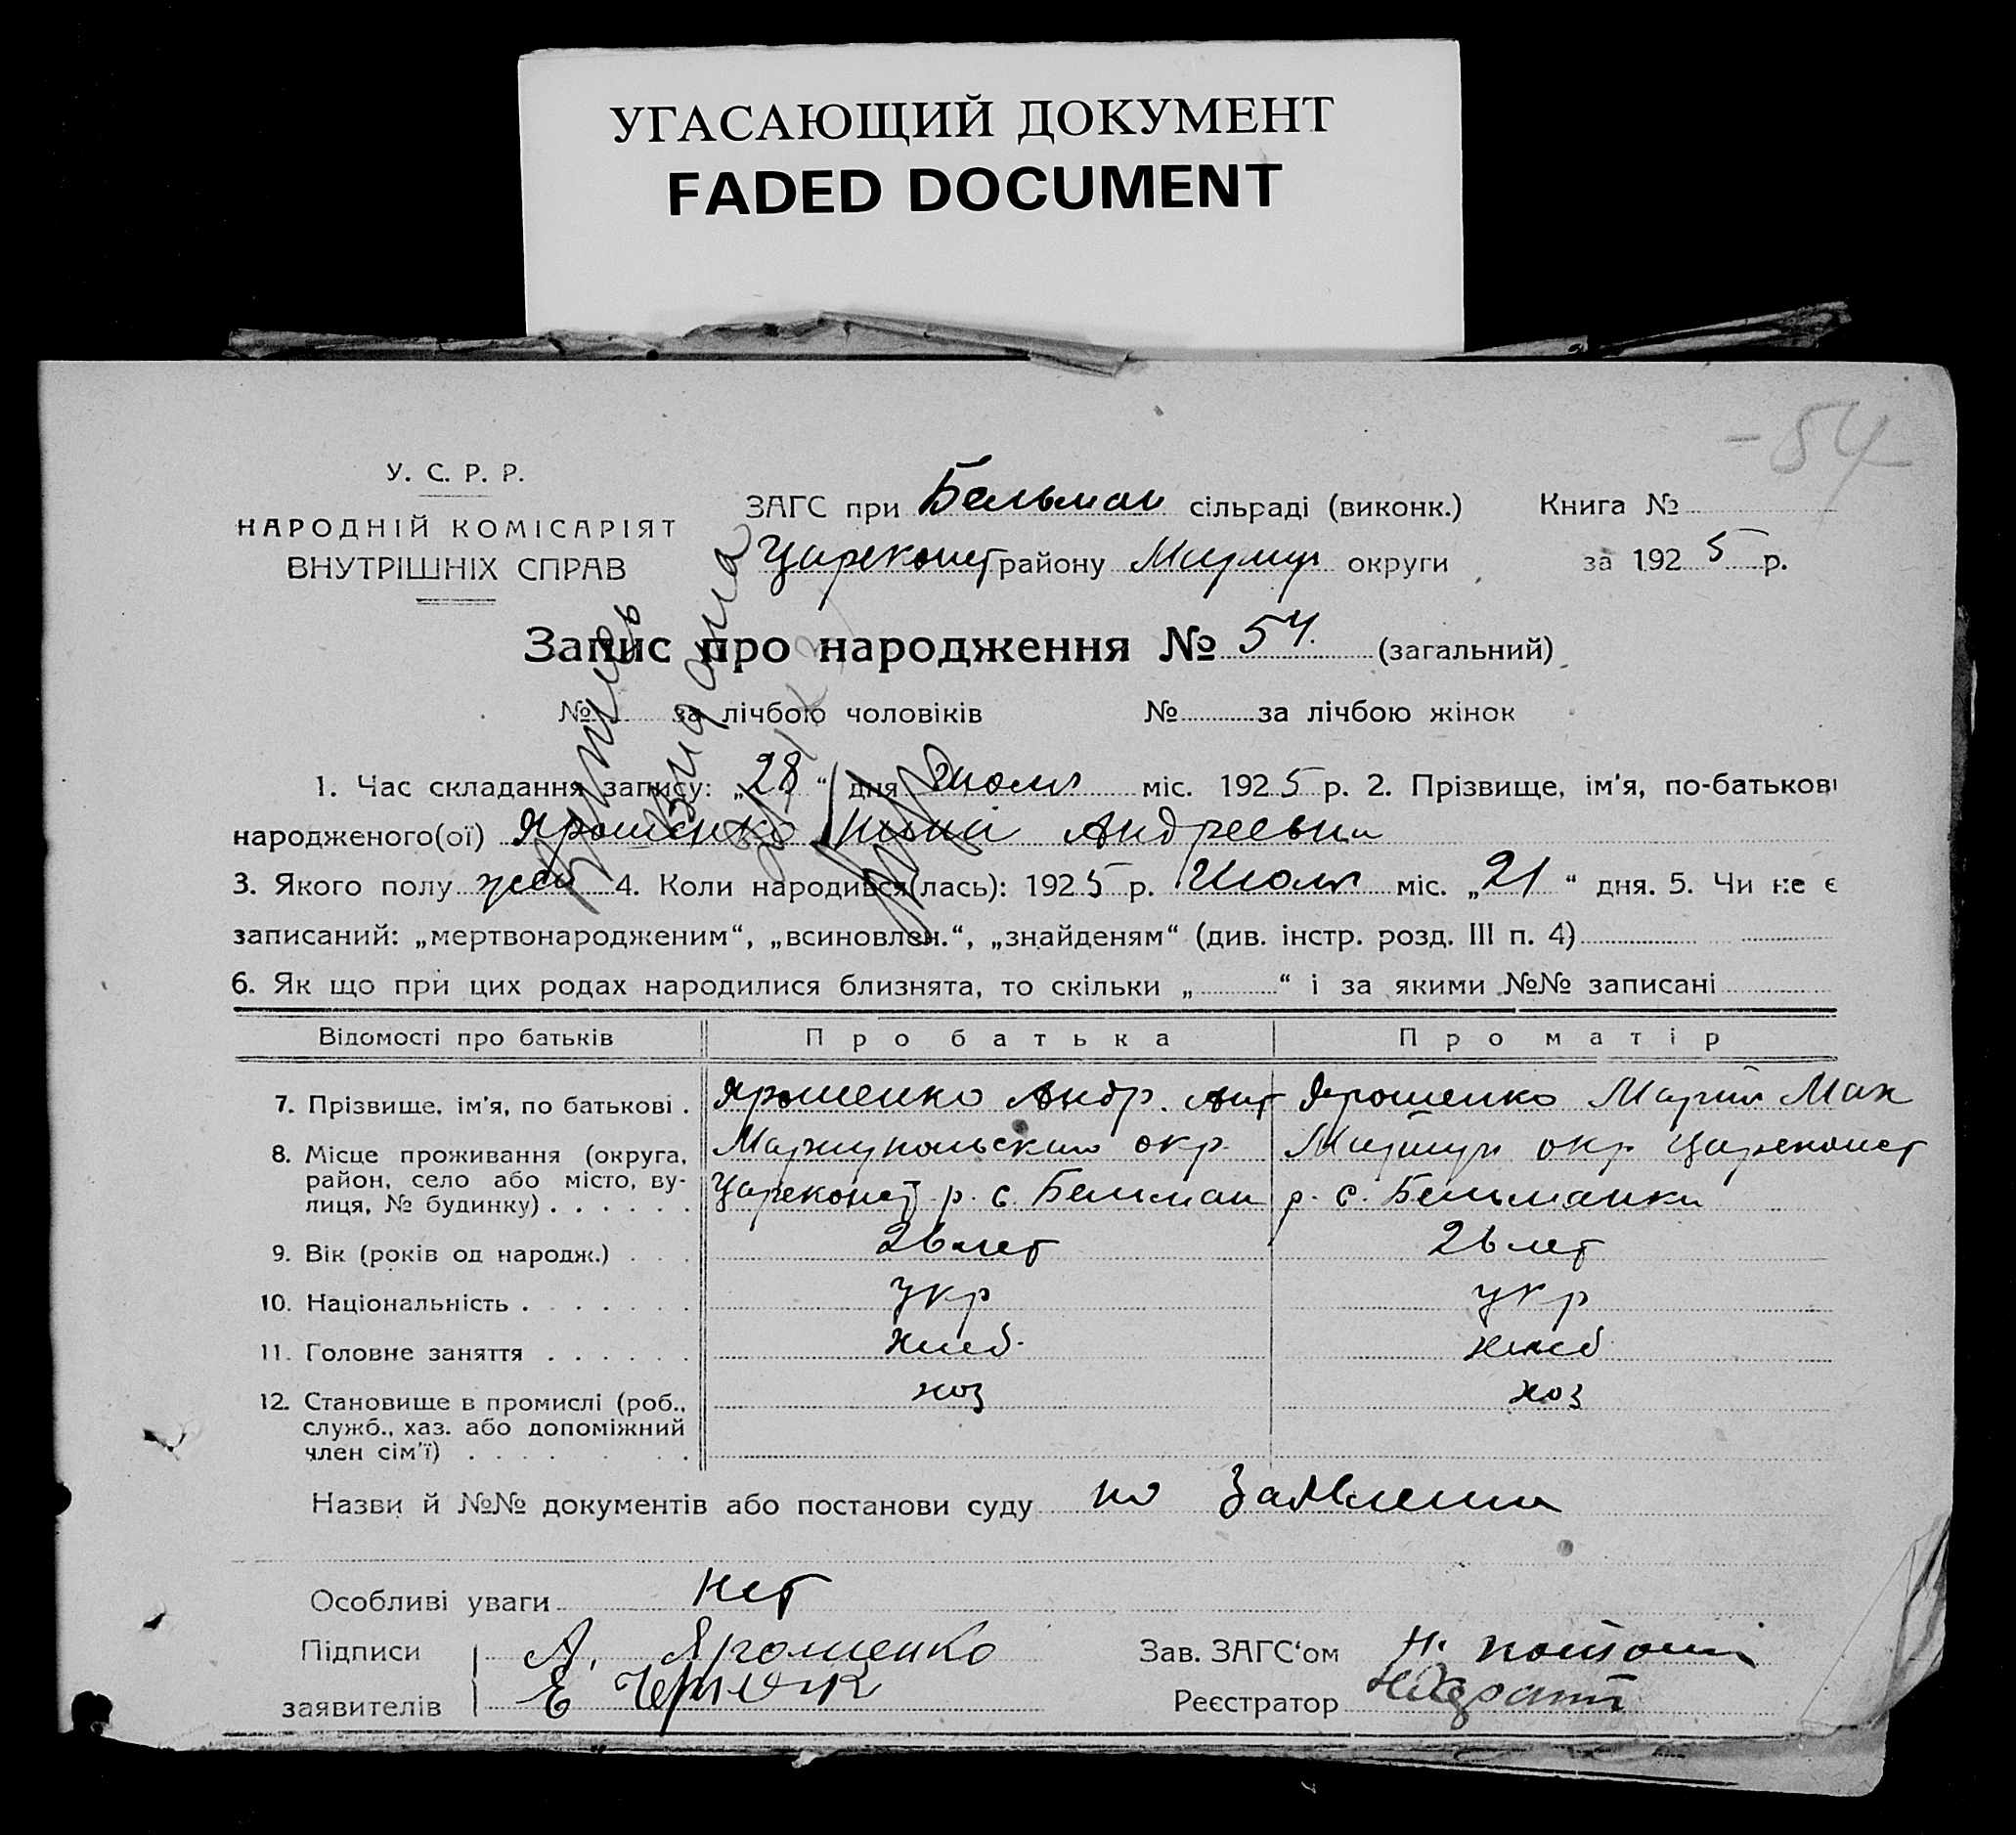 УГАСАЮЩИЙ ДОКУМЕНТ
FADED DOCUMENT
-54
У. С. Р. Р.
НАРОДНІЙ КОМІСАРІЯТ
ВНУТРІШНІХ СПРАВ
ЗАГС при Бельман сільраді (виконк.) Книга №
Цареконст району округи за 1925 р.
Запис про народження № 54. (загальний)
№ за лічбою чоловіків № за лічбою жінок
1. Час складання запису: „28“ дня Июля міс. 1925 р. 2. Прізвище, ім'я, по-батькові
народженого(ої) Ярошенко Андреевна
3. Якого полу жен 4. Коли народився(лась): 1925 р. Июля міс. „21“ дня. 5. Чи не є
записаний: „мертвонародженим“, „всиновлен.“, „знайденям“ (див. інстр. розд. III п. 4)
6. Як що при цих родах народилися близнята, то скільки „ “ і за якими №№ записані
Відомості про батьків Про батька Про матір
7. Прізвище, ім'я, по батькові . Ярошенко Андр. Ант Ярошенко Мария Мак
8. Місце проживання (округа, Мариупольским окр. окр Цареконст
район, село або місто, ву- Цареконст р. с. Бельман р. с. Бельманки
лиця, № будинку) . . . . . .
9. Вік (років од народж.) . . . 26 лет 26 лет
10. Національність . . . . . . . укр укр
11. Головне заняття . . . . . . хлеб. хлеб
12. Становище в промислі (роб., хоз хоз
служб., хаз. або допоміжний
член сім'ї) . . . . . . .
Назви й №№ документів або постанови суду по Заявлению
Особливі уваги нет
Підписи А. Ярошенко Зав. ЗАГС'ом
заявителів Е Реєстратор